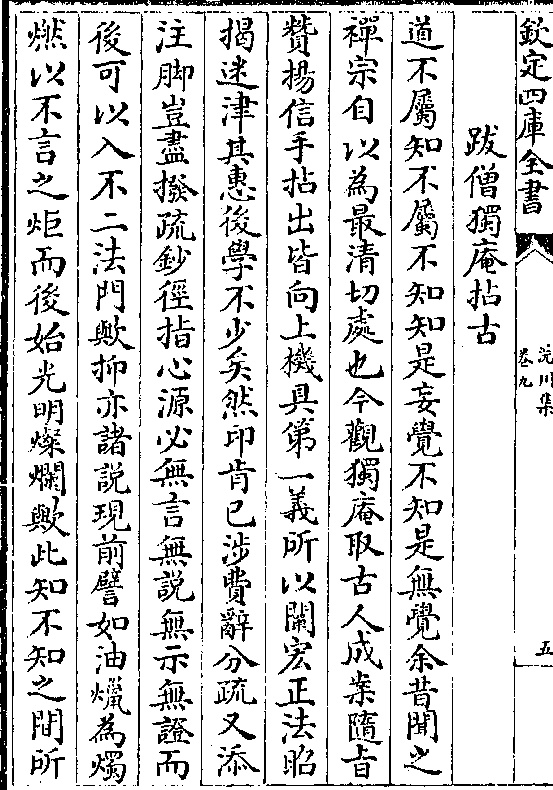 欽定四庫全書
沅川集
卷九
五
跋僧獨庵拈古
道不屬知不屬不知知是妄覺不知是無覺余昔聞之
禪宗自以為最清切處也今觀獨庵取古人成案隨旨
贊揚信手拈出皆向上機具第一義所以闡宏正法昭
揭迷津其惠後學不少矣然印肯已涉費辭分疏又添
注脚豈盡撥疏鈔徑指心源必無言無說無示無證而
後可以入不二法門歟抑亦諸說現前譬如油爉為燭
燃以不言之炬而後始光明燦爛歟此知不知之間所